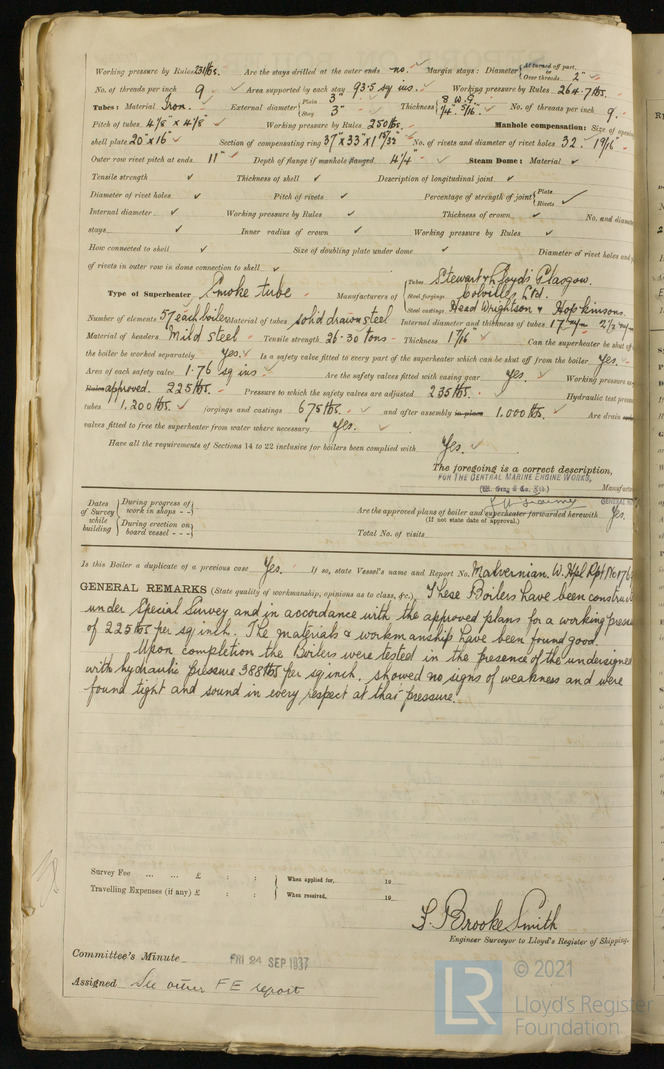 Working pressure by Rules 231 lbs. Are the stays drilled at the outer ends no. Margin stays: Diameter { At turned off part, or Over threads 2"
No. of threads per inch 9 Area supported by each stay 93.5 sq ins. Working pressure by Rules 264.7 lbs.
Tubes: Material Iron. External diameter { Plain 3" Stay 3" Thickness { 8 W.G. 1/4" 5/16" No. of threads per inch 9.
Pitch of tubes 4 1/8" x 4 1/8" Working pressure by Rules 250 lbs. Manhole compensation: Size of
shell plate 20" x 16" Section of compensating ring 37" x 33" x 1 13/32" No. of rivets and diameter of rivet holes 32. 1 9/16"
Outer row rivet pitch at ends 11" Depth of flange if manhole flanged 4 1/4" Steam Dome: Material ✓
Tensile strength ✓ Thickness of shell ✓ Description of longitudinal joint ✓
Diameter of rivet holes ✓ Pitch of rivets ✓ Percentage of strength of joint { Plate Rivets ✓
Internal diameter ✓ Working pressure by Rules ✓ Thickness of crown ✓ No. and
stays ✓ Inner radius of crown ✓ Working pressure by Rules ✓
How connected to shell ✓ Size of doubling plate under dome ✓ Diameter of rivet holes and
of rivets in outer row in dome connection to shell ✓
Type of Superheater Smoke tube Manufacturers of { Tubes Stewart & Lloyds Glasgow.
Steel forgings Colvilles Ltd.
Steel castings Head Wrightson & Hopkinsons.
Number of elements 57 each boiler Material of tubes solid drawn steel Internal diameter and thickness of tubes 17 m/m 2 1/2 m/m
Material of headers Mild Steel Tensile strength 26-30 tons Thickness 1 1/16" Can the superheater be shut off
the boiler be worked separately Yes. Is a safety valve fitted to every part of the superheater which can be shut off from the boiler Yes.
Area of each safety valve 1.76 sq ins Are the safety valves fitted with easing gear Yes. Working pressure
approved. 225 lbs. Pressure to which the safety valves are adjusted 235 lbs. Hydraulic test
tubes 1,200 lbs. forgings and castings 675 lbs. and after assembly in place 1,000 lbs. Are drain
valves fitted to free the superheater from water where necessary Yes.
Have all the requirements of Sections 14 to 22 inclusive for boilers been complied with Yes.
The foregoing is a correct description,
FOR THE CENTRAL MARINE ENGINE WORKS,
(W. Gray & Co. Ltd.)
Dates of Survey while building { During progress of work in shops - - } { During erection on board vessel - - - }
Are the approved plans of boiler and superheater forwarded herewith Yes.
(If not state date of approval.)
Total No. of visits
Is this Boiler a duplicate of a previous case Yes. If so, state Vessel's name and Report No. Malvernian. W. Hpl Rpt No
GENERAL REMARKS (State quality of workmanship, opinions as to class, &c.) These Boilers have been
under Special Survey and in accordance with the approved plans for a working
of 225 lbs per sq inch. The materials & workmanship have been found good.
Upon completion the Boilers were tested in the presence of the undersigned
with hydraulic pressure 388 lbs per sq inch. showed no signs of weakness and were
found tight and sound in every respect at that pressure.
Survey Fee ... ... £ : : When applied for, 19
Travelling Expenses (if any) £ : : When received, 19
F. Brooke Smith
Engineer Surveyor to Lloyd's Register of Shipping.
Committee's Minute FRI 24 SEP 1937
Assigned See other F E report
LR © 2021
Lloyd's Register
Foundation